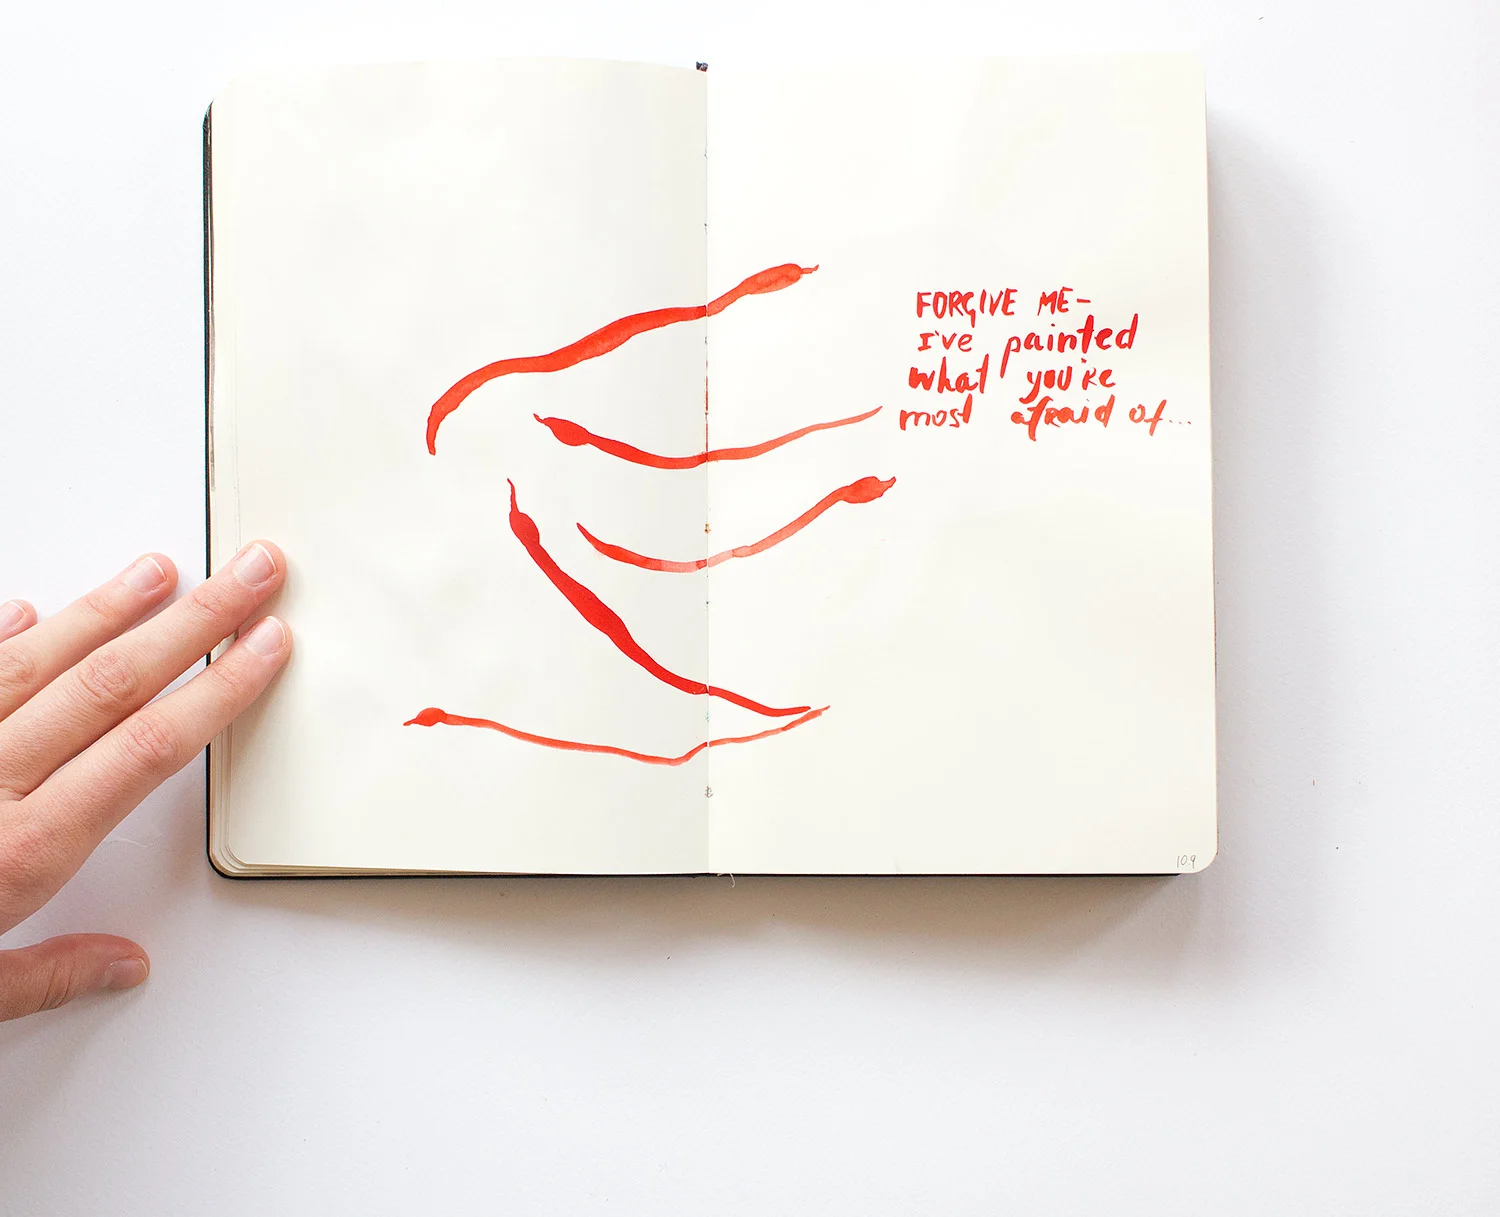 FORGIVE ME-
I've painted
what you're
most afraid of...
10.9